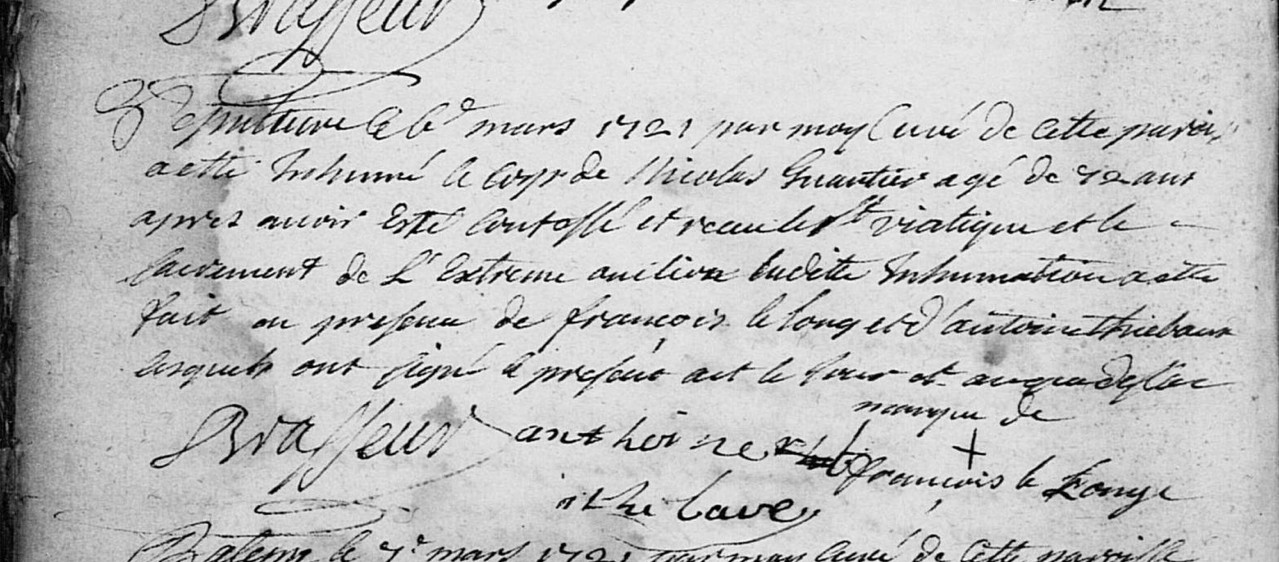 Brasseur
Sepulture le 6e mars 1721 par moy Curé de cette parois
a etté Inhumé le corp de Nicolas Gruantier agé de 72 ans
apres avoir Esté Confessé et receu le St viatique et le
sacrement de L'Extreme onction ladite Inhumation a etté
fait en presence de françois le long et d'antoine thiebaux
lesquels ont signé le present act le jour et an que dessus
marque de
Brasseur anthoine françois le Longe
Batem le 7e mars 1721 par moy Curé de cette paroisse